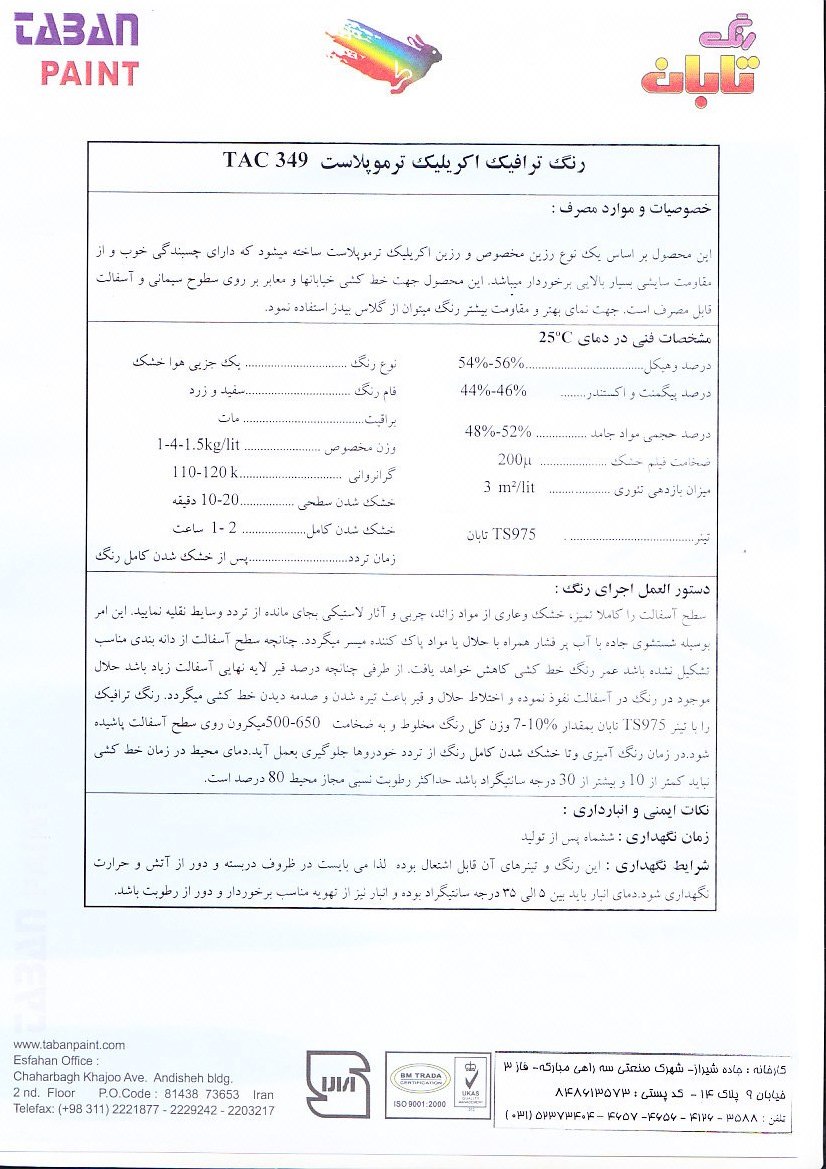 TABAN
PAINT
رنگ
تابان
رنگ ترافیک اکریلیک ترموپلاست TAC 349
خصوصیات و موارد مصرف :
این محصول بر اساس یک نوع رزین مخصوص و رزین اکریلیک ترموپلاست ساخته میشود که دارای چسبندگی خوب و از
مقاومت سایشی بسیار بالایی برخوردار میباشد. این محصول جهت خط کشی خیابانها و معابر بر روی سطوح سیمانی و آسفالت
قابل مصرف است. جهت نمای بهتر و مقاومت بیشتر رنگ میتوان از گلاس بیدز استفاده نمود.
مشخصات فنی در دمای 25ºC
درصد وهیکل..............................54%-56%
درصد پیگمنت و اکستندر......... 44%-46%
درصد حجمی مواد جامد ............... 48%-52%
ضخامت فیلم خشک ................... 200µ
میزان بازدهی تئوری ................. 3 m²/lit
تینر................................ . TS975 تابان
نوع رنگ ............................ یک جزیی هوا خشک
فام رنگ .............................سفید و زرد
براقیت................................. مات
وزن مخصوص ..................... 1-4-1.5kg/lit
گرانروانی ............................110-120 k
خشک شدن سطحی ...............10-20 دقیقه
خشک شدن کامل................... 2 -1 ساعت
زمان تردد.................................پس از خشک شدن کامل رنگ
دستور العمل اجرای رنگ :
سطح آسفالت را کاملا تمیز، خشک وعاری از مواد زائد، چربی و آثار لاستیکی بجای مانده از تردد وسایط نقلیه نمایید. این امر
بوسیله شستشوی جاده با آب پر فشار همراه با حلال یا مواد پاک کننده میسر میگردد. چنانچه سطح آسفالت از دانه بندی مناسب
تشکیل نشده باشد عمر رنگ خط کشی کاهش خواهد یافت. از طرفی چنانچه درصد قیر لایه نهایی آسفالت زیاد باشد حلال
موجود در رنگ در آسفالت نفوذ نموده و اختلاط حلال و قیر باعث تیره شدن و صدمه دیدن خط کشی میگردد. رنگ ترافیک
را با تینر TS975 تابان بمقدار 10%-7 وزن کل رنگ مخلوط و به ضخامت 650-500میکرون روی سطح آسفالت پاشیده
شود.در زمان رنگ آمیزی وتا خشک شدن کامل رنگ از تردد خودروها جلوگیری بعمل آید.دمای محیط در زمان خط کشی
نباید کمتر از 10 و بیشتر از 30 درجه سانتیگراد باشد حداکثر رطوبت نسبی مجاز محیط 80 درصد است.
نکات ایمنی و انبارداری :
زمان نگهداری : ششماه پس از تولید
شرایط نگهداری : این رنگ و تینرهای آن قابل اشتعال بوده لذا می بایست در ظروف دربسته و دور از آتش و حرارت
نگهداری شود.دمای انبار باید بین ۵ الی ۳۵ درجه سانتیگراد بوده و انبار نیز از تهویه مناسب برخوردار و دور از رطوبت باشد.
www.tabanpaint.com
Esfahan Office :
Chaharbagh Khajoo Ave. Andisheh bldg.
2 nd. Floor P.O.Code : 81438 73653 Iran
Telefax: (+98 311) 2221877 - 2229242 - 2203217
BM TRADA
CERTIFICATION
ISO 9001:2000
UKAS
QUALITY
MANAGEMENT
کارخانه : جاده شیراز- شهرک صنعتی سه راهی مبارکه- فاز ۳
خیابان ۹ پلاک ۱۴ - کد پستی : ۸۴۸۶۱۳۵۷۳
تلفن : ۳۵۸۸ - ۴۱۲۶ - ۴۶۵۶ - ۴۶۵۷ - ۵۲۳۷۳۴۰۴ (۰۳۱)